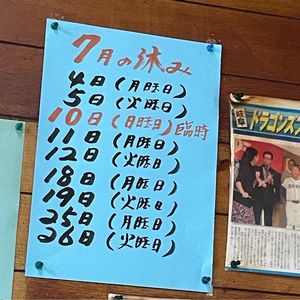 7月の休み
4日(月曜日)
5日(火曜日)
10日(日曜日)臨時
11日(月曜日)
12日(火曜日)
18日(月曜日)
19日(火曜日)
25日(月曜日)
26日(火曜日)
岐阜
ドラゴンズ